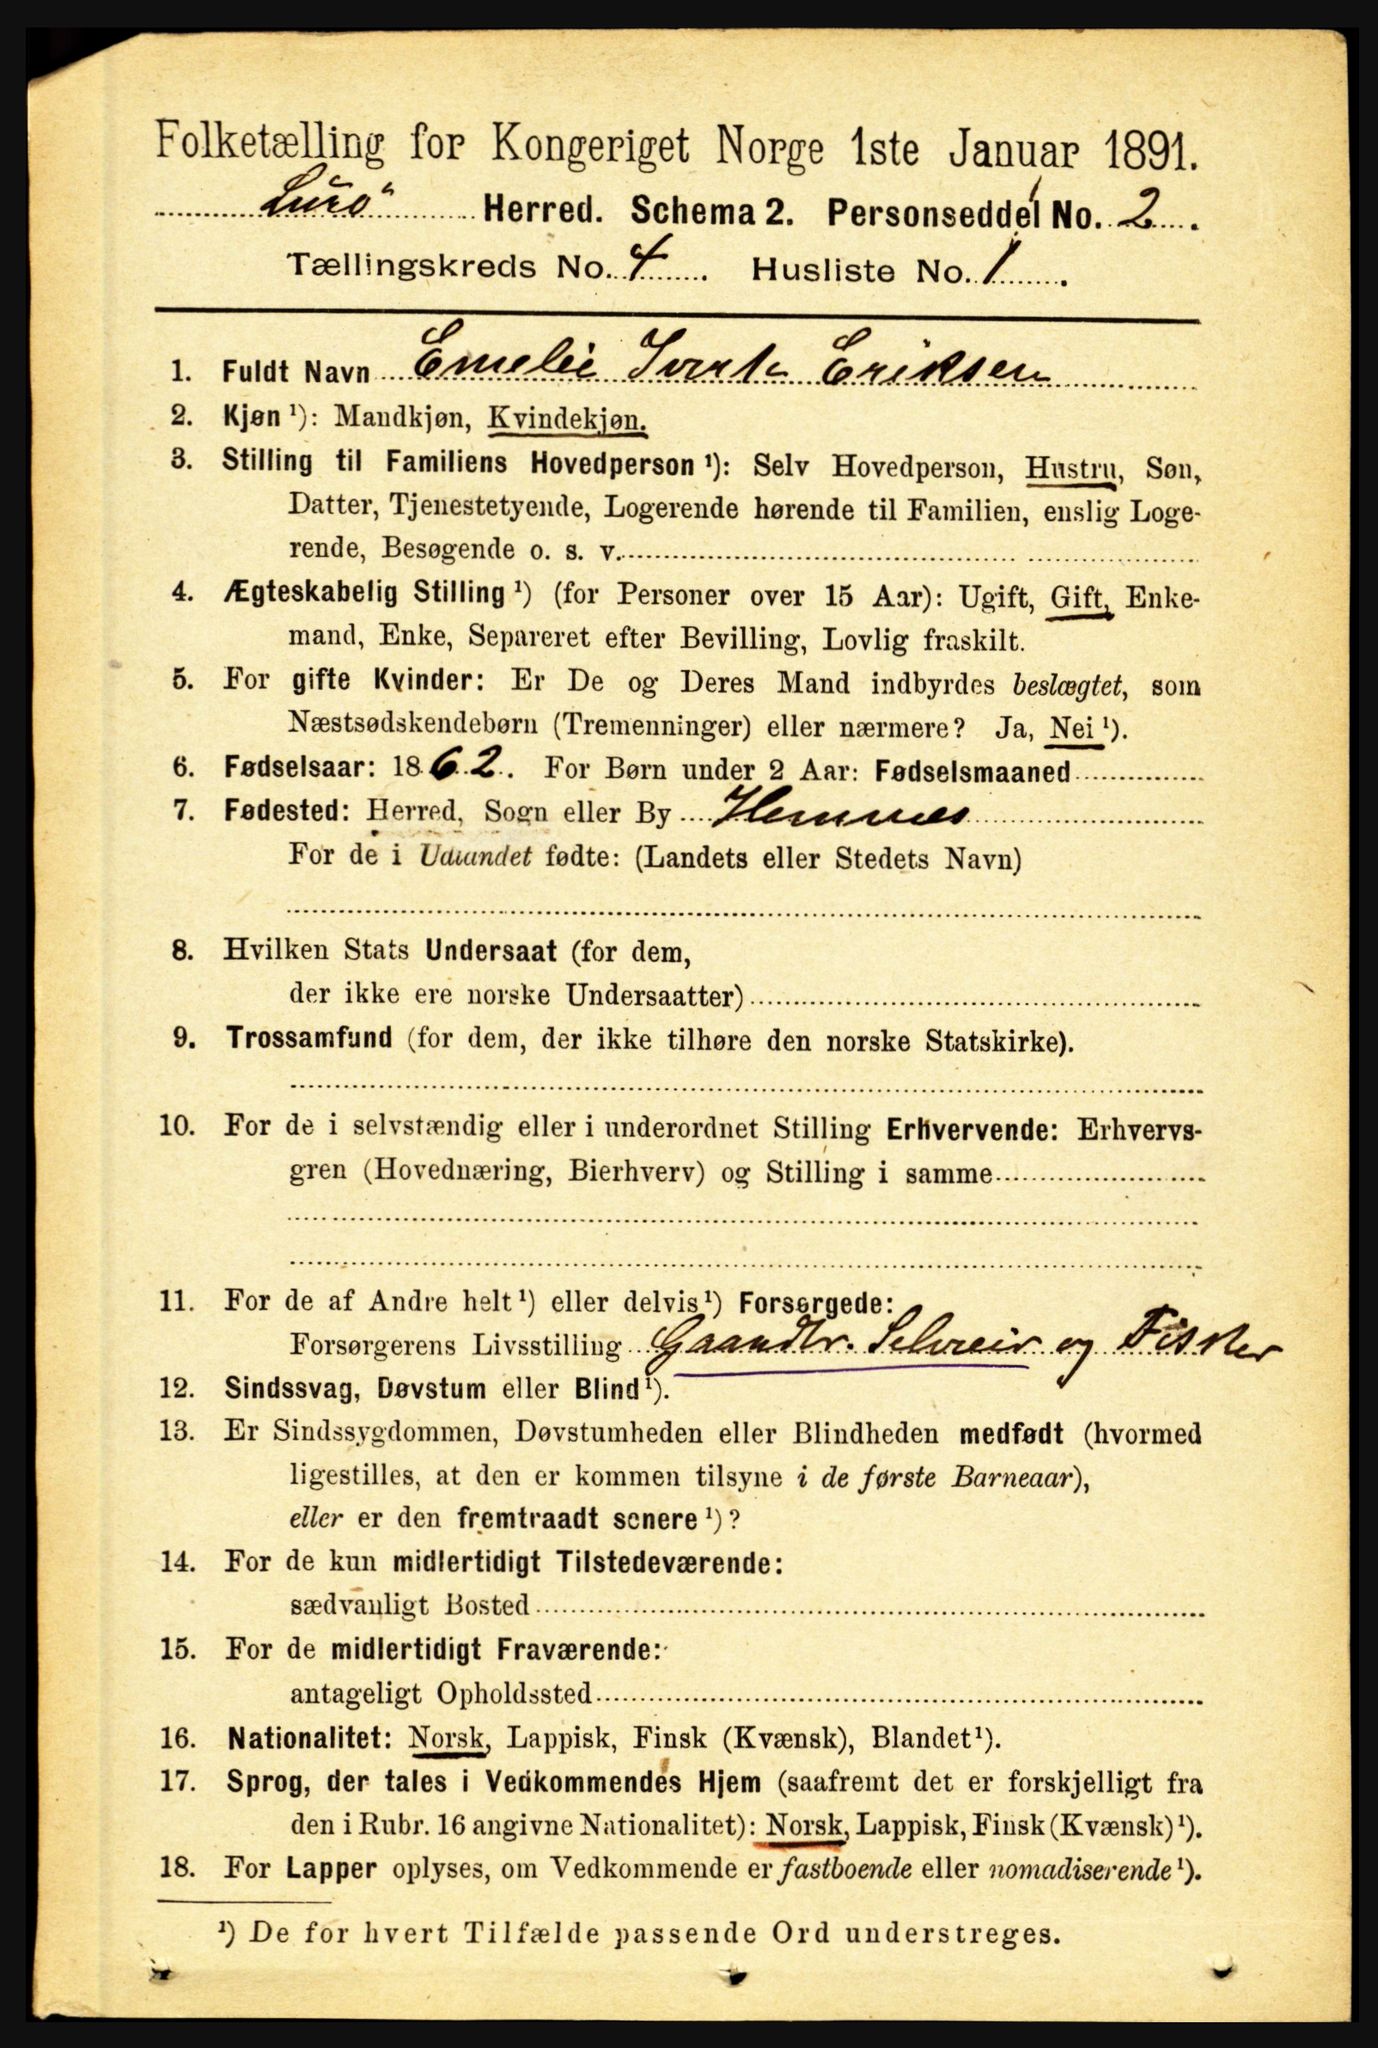 Folketælling for Kongeriget Norge 1ste Januar 1891.
Lurö Herred. Schema 2. Personseddel No. 2.
Tællingskreds No. 4. Husliste No. 1.
1. Fuldt Navn Emelie Eriksen
2. Kjøn ¹): Mandkjøn, Kvindekjøn.
3. Stilling til Familiens Hovedperson ¹): Selv Hovedperson, Hustru, Søn,
Datter, Tjenestetyende, Logerende hørende til Familien, enslig Loge-
rende, Besøgende o. s. v.
4. Ægteskabelig Stilling ¹) (for Personer over 15 Aar): Ugift, Gift, Enke-
mand, Enke, Separeret efter Bevilling, Lovlig fraskilt.
5. For gifte Kvinder: Er De og Deres Mand indbyrdes beslægtet, som
Næstsødskendebørn (Tremenninger) eller nærmere? Ja, Nei ¹).
6. Fødselsaar: 1862. For Børn under 2 Aar: Fødselsmaaned
7. Fødested: Herred, Sogn eller By Hemnes
For de i Udlandet fødte: (Landets eller Stedets Navn)
8. Hvilken Stats Undersaat (for dem,
der ikke ere norske Undersaatter)
9. Trossamfund (for dem, der ikke tilhøre den norske Statskirke).
10. For de i selvstændig eller i underordnet Stilling Erhvervende: Erhvervs-
gren (Hovednæring, Bierhverv) og Stilling i samme
11. For de af Andre helt ¹) eller delvis ¹) Forsørgede:
Forsørgerens Livsstilling Gaardbr. Selveier og Fisker
12. Sindssvag, Døvstum eller Blind ¹).
13. Er Sindssygdommen, Døvstumheden eller Blindheden medfødt (hvormed
ligestilles, at den er kommen tilsyne i de første Barneaar),
eller er den fremtraadt senere ¹)?
14. For de kun midlertidigt Tilstedeværende:
sædvanligt Bosted
15. For de midlertidigt Fraværende:
antageligt Opholdssted
16. Nationalitet: Norsk, Lappisk, Finsk (Kvænsk), Blandet ¹).
17. Sprog, der tales i Vedkommendes Hjem (saafremt det er forskjelligt fra
den i Rubr. 16 angivne Nationalitet): Norsk, Lappisk, Finsk (Kvænsk) ¹).
18. For Lapper oplyses, om Vedkommende er fastboende eller nomadiserende ¹).
¹) De for hvert Tilfælde passende Ord understreges.